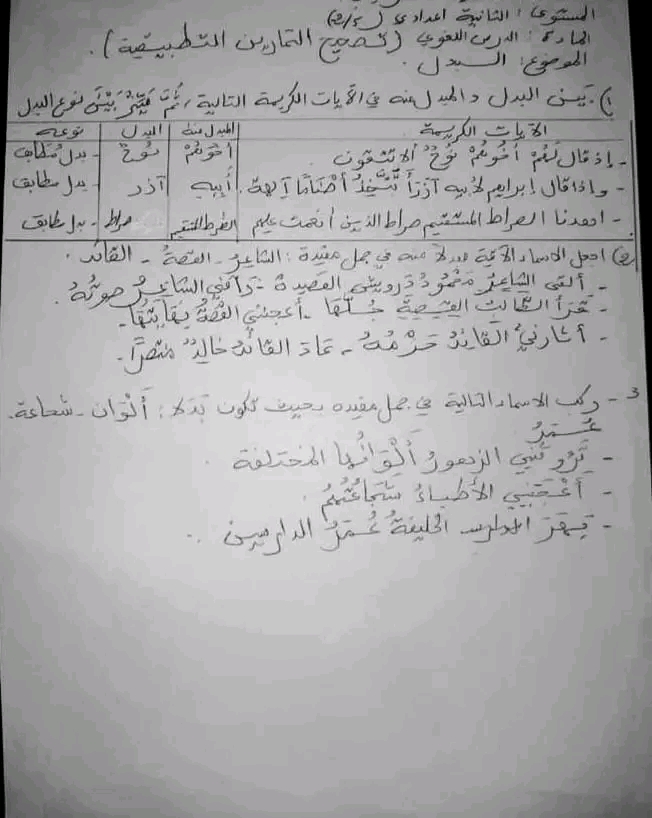 المستوى : الثانية اعدادي (2/5)
المادة : الدرس اللغوي (تصحيح التمارين التطبيقية).
الموضوع : البدل.
1) يبين البدل والمبدل منه في الآيات الكريمة التالية، ثم بين نوع البدل
الآيات الكريمة المبدل منه البدل نوعه
- إذ قال لهم أخوهم نوح ألا تتقون أخوهم نوح - بدل مطابق
- واذا قال إبراهيم لأبيه آزر أتتخذ أصناما آلهة. أبيه آزر - بدل مطابق
- اهدنا الصراط المستقيم صراط الذين أنعمت عليهم الصراط المستقيم صراط - بدل مطابق
2) اجعل الاسماء الآتية مبدلا منه في جمل مفيدة : الشاعر - القصة - القائد.
- ألقى الشاعر محمود درويش القصيدة - راقني الشاعر صوته.
- قرأ الطالب القصة جلها - أعجبتني القصة نهايتها.
- أثارني القائد حزمه - عاد القائد خالد منتصرا.
3 - ركب الاسماء التالية في جمل مفيدة بحيث تكون بدلا : ألوان - شجاعة.
عمر
- تروقني الزهور ألوانها المختلفة
- أعجبني الأطباء شجاعتهم
- الخليفة عمر